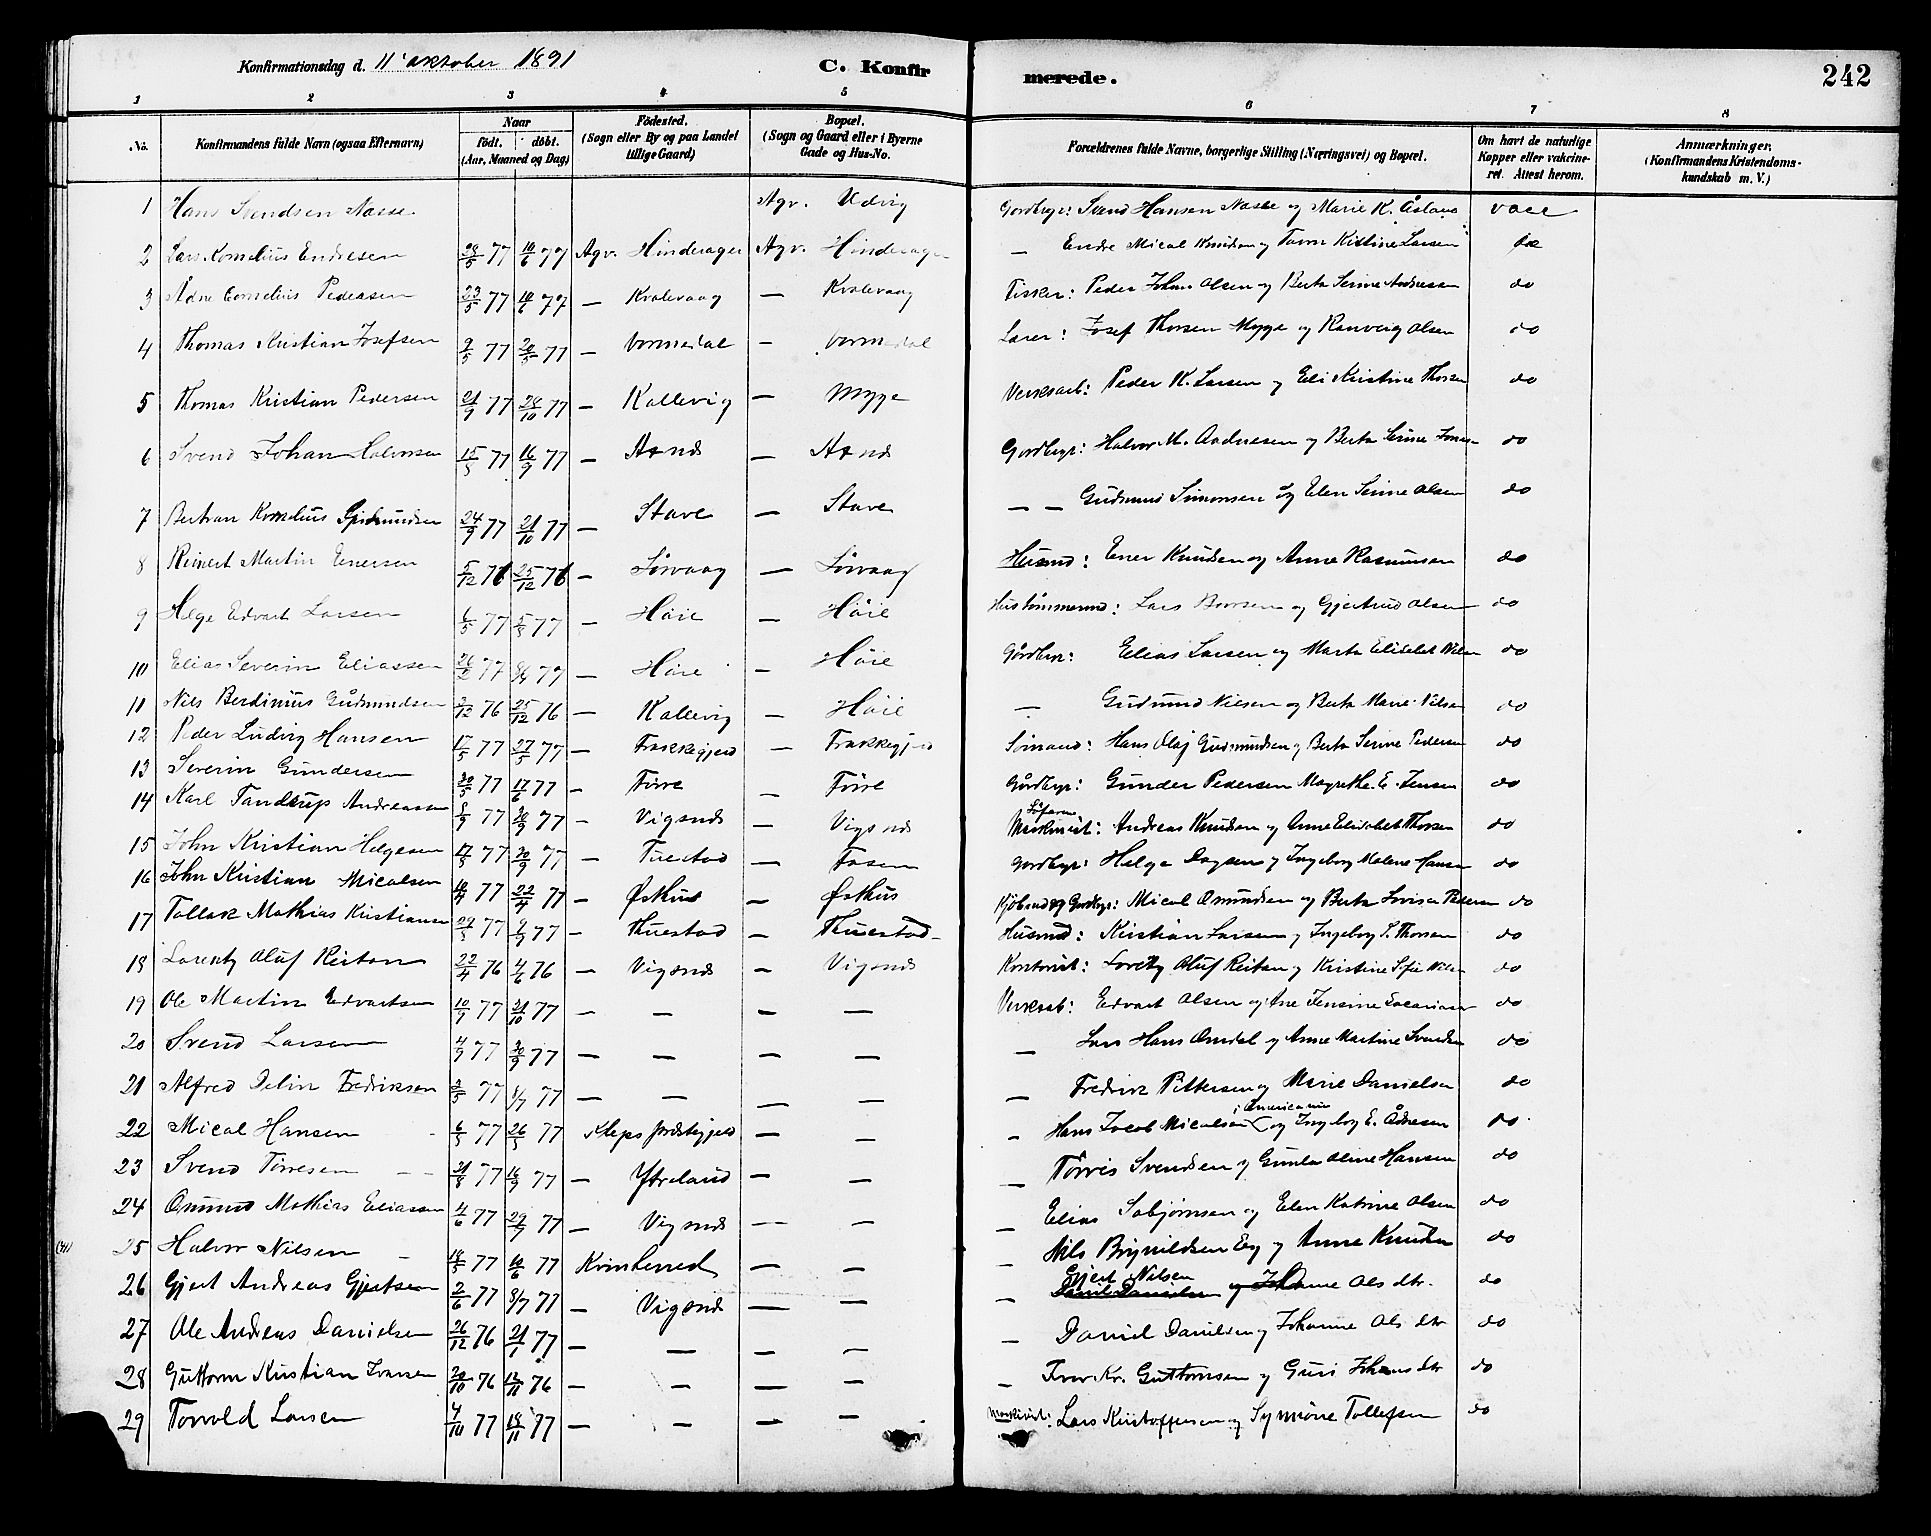 Konfirmationsdag d. 11' oktober 1891 C. Konfirmerede. 242
1 2 3 4 5 6 7 8
No. Konfirmandens fulde Navn (ogsaa Efternavn) Naar födt. döbt. (Aar, Maaned og Dag) Födested. (Sogn eller By og paa Landet tillige Gaard) Bopæl. (Sogn og Gaard eller i Byerne Gade og Hus-No. Forældrenes fulde Navne, borgerlige Stilling (Næringsvei) og Bopæl. Om havt de naturlige Kopper eller vakcineret. Attest herom. Anmærkninger. (Konfirmandens Kristendomskundskab m. V.)
1 Hans Svendsen Næsse Agv. Udvig Gordbrgr: Svend Hansen Næsse og Marie K. vacc
2 Lars Kornelius Endresen 28/5 77 10/6 77 Agv. Hinderager Agv. Hinderager — Endre Mical Knudsen og Larsen
3 Ådne Cornelius Pedersen 23/5 77 10/6 77 — Kvalevaag — Kvalevaag Fisker: Peder Johan Olsen og Berta Serine Andresen do
4 Thomas Kristian Josefsen 2/5 77 20/5 77 — Vormedal — Vormedal Lærer: Josef Thorsen Myge og Ranveig Olsen do
5 Thomas Kristian Pedersen 21/9 77 28/10 77 — Kallevig — Myge Verksarb: Peder K. Larsen og Eli Kristine Thorsen do
6 Svend Johan Halvorsen 15/8 77 16/9 77 — — Gordbrgr: Halvor M. Andresen og Berta Serine do
7 Bertran Kornelius 24/9 77 21/10 77 — Stave — Stave — — Gudmund Simonsen og Elen Serine Olsen do
8 Reinert Martin Enersen 5/12 76 25/12 76 — Sörvaag — Sörvaag Husmd: Ener Knudsen og Anne Rasmussen do
9 Helge Edvart Larsen 6/5 77 5/8 77 — Höie — Höie Hustömmermd: Lars og Gjertrud Olsen do
10 Elias Severin Eliassen 26/2 77 8/4 77 — Höie — Höie Gårdbrgr: Elias Larsen og Marta Elisebet Nilsen do
11 Nils Berdinius Gudmundsen 2/12 76 25/12 76 — Kallevig — Höie — Gudmund Nilsen og Berta Marie Nilsen do
12 Peder Ludvig Hansen 17/5 77 27/5 77 — Frakkegjerd — Frakkegjerd Sömand: Hans Olaj Gudmundsen og Berta Serine Pedersen do
13 Severin Gundersen 20/5 77 17/6 77 — Förre — Förre Gårdbrgr: Gunder Pedersen Magrethe E. Jensen do
14 Karl Tandrup Andreassen 8/9 77 30/9 77 — Vigsnes — Vigsnes Maskinist: Andreas Knudsen og Anne Elisabet Thorsen do
15 John Kristian Helgesen 17/8 77 30/9 77 — Tuestad — Fosen Gordbrgr: Helge Dagsen og Ingeborg Malene Hansen do
16 John Kristian Micalsen 10/4 77 22/4 77 — Østhus — Østhus Kjöbmd og Gordbrgr: Mical Osmundsen og Berta Lovisa Pedersen do
17 Tollak Mathias Kristiansen 29/8 77 9/9 77 — Thuestad — Thuestad Husmd: Kristian Larsen og Ingeborg S. Thorsen do
18 Lorentz Oluf Reitan 22/4 76 4/6 76 — Vigsnes — Vigsnes Kontorist: Lorentz Oluf Reitan og Kristine Sofie Nilsen do
19 Ole Martin Edvartsen 10/9 77 21/10 77 — — — — Verksarb: Edvart Olsen og Ane Jensine do
20 Svend Larsen 4/9 77 30/9 77 — — — — — Lars Hans Omdal og Anne Martine Svendsen do
21 Alfred Delin Fredriksen 3/5 77 1/7 77 — — — — — Fredrik Pettersen og Marie Danielsen do
22 Mical Hansen 6/5 77 26/5 77 Kleps Præstegjeld — — — Hans Jacob Micalsen i America og Ingeborg E. Ådnesen do
23 Svend Törresen 21/8 77 16/9 77 — Ytreland — — — Törris Svendsen og Gunla Oline Hansen do
24 Osmund Mathias Eliassen 4/6 77 29/7 77 — Vigsnes — — — Elias Sabjörnsen og Elen Katrine Olsen do
25 Halvor Nilsen 18/5 77 10/6 77 Kvinherred — — — Nils Brynildsen Eeg og Anne Knudsen do
26 Gjert Andreas Gjertsen 2/6 77 8/7 77 — Vigsnes — — — Gjert Nilsen Daniel Danielsen og Johanne Ols dtr. do
27 Ole Andreas Danielsen 26/12 76 21/1 77 — — — — — Daniel Danielsen og Johanne Ols dtr do
28 Guttorm Kristian Ivarsen 20/10 76 12/11 76 — — — — — Iver Kr. Guttormsen og Guri Johans dtr do
29 Torvald Larsen 4/10 77 18/11 77 — — — — Maskinist: Lars Kristoffersen og Synnöve Tollefsen do